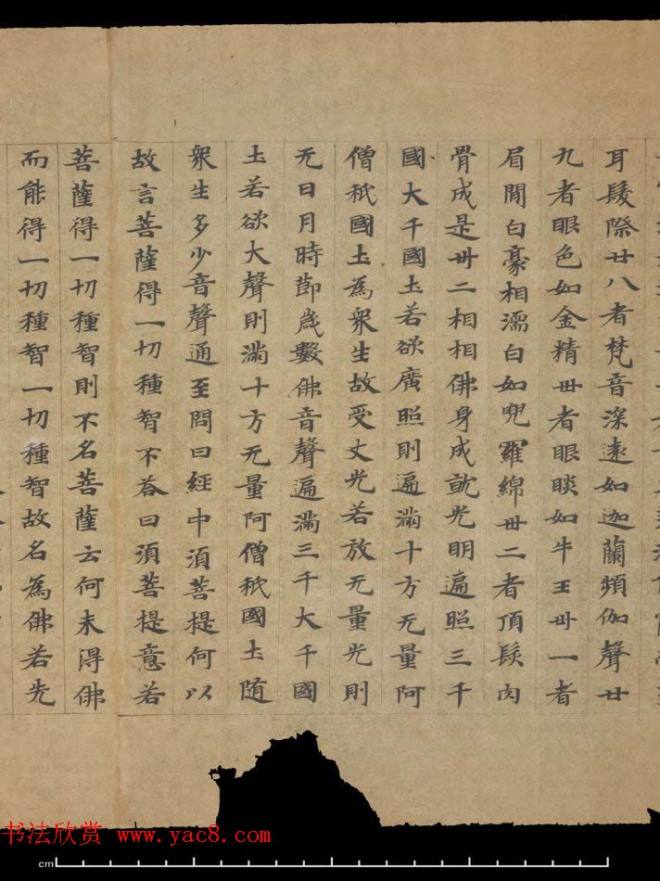 耳髮際廿八者梵音深遠如迦蘭頻伽聲廿
九者眼色如金精卅者眼睒如牛王卅一者
眉間白豪相濡白如兜羅綿卅二者頂䯻肉
骨成是卅二相相佛身成就光明遍照三千
國大千國土若欲廣照則遍滿十方无量阿
僧秖國土為衆生故受丈光若放无量光則
无日月時節歲數佛音聲遍滿三千大千國
土若欲大聲則滿十方无量阿僧秖國土随
衆生多少音聲通至問曰經中須菩提何以
故言菩薩得一切種智不荅曰須菩提意若
菩薩得一切種智則不名菩薩云何未得佛
而能得一切種智一切種智故名為佛若先
书法欣赏 www.yac8.com
cm